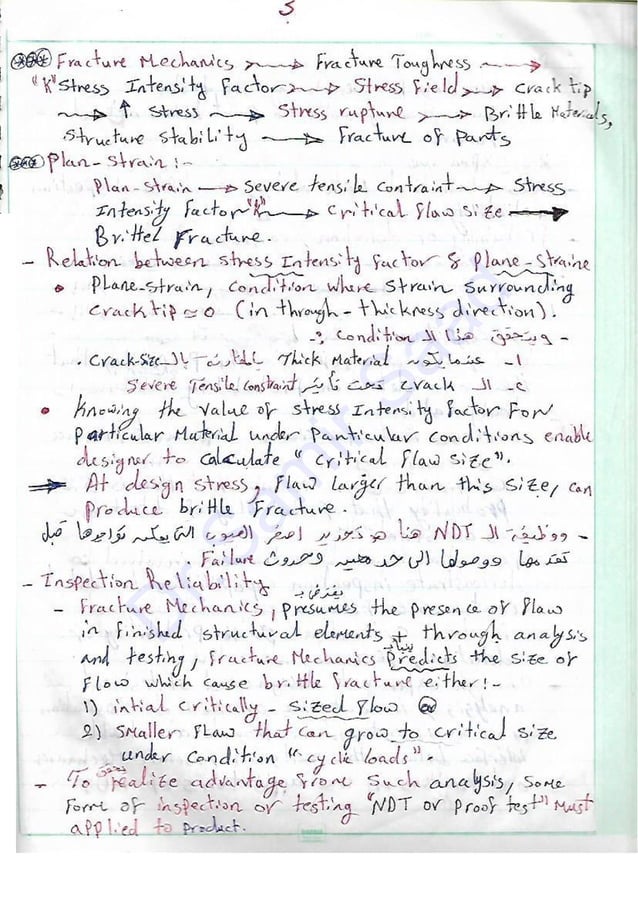 5
Fracture Mechanics → Fracture Toughness →
"K" Stress Intensity Factor → Stress Field → Crack tip
→ ↑ Stress → Stress rupture → Brittle Materials,
Structure stability → Fracture of Parts
Plan-Strain :-
Plan-Strain → Severe tensile contraint → Stress
Intensity Factor "K" → Critical Flaw Size →
Brittel Fracture.
- Relation between Stress Intensity factor & Plane-Straine
• Plane-Strain, condition where Strain Surrounding
Crack tip ≃ 0 (in through-thickness direction).
- ويتحقق هذا الـ Condition :-
١- عندما يكون Thick Material بالمقارنة بالـ Crack-Size.
٢- الـ Crack تحت تأثير Severe Tensile Constraint
• Knowing the Value of Stress Intensity Factor For
Particular Material under Particular conditions enable
designer to calculate "Critical Flaw Size".
⇒ At design Stress, Flaw larger than this Size, can
Produce brittle Fracture.
- ووظيفة الـ NDT هنا هو تحديد أصغر العيوب التي يمكن تواجدها قبل
تقدمها ووصولها إلى حد معين وحدوث Failure.
- Inspection Reliability
يفترض
- Fracture Mechanics, presumes the presence of Flaw
in Finished Structural elements + through analysis
and testing, Fracture Mechanics Predicts the size of
Flow which cause brittle fracture either :-
1) intial critically - Sized Flow
2) Smaller Flaw that can grow to critical size
under condition "cyclic loads".
يحقق
- To realize advantage from Such analysis, Some
Form of inspection or testing "NDT or Proof test" Must
applied to product.
Dr. Samir Saad